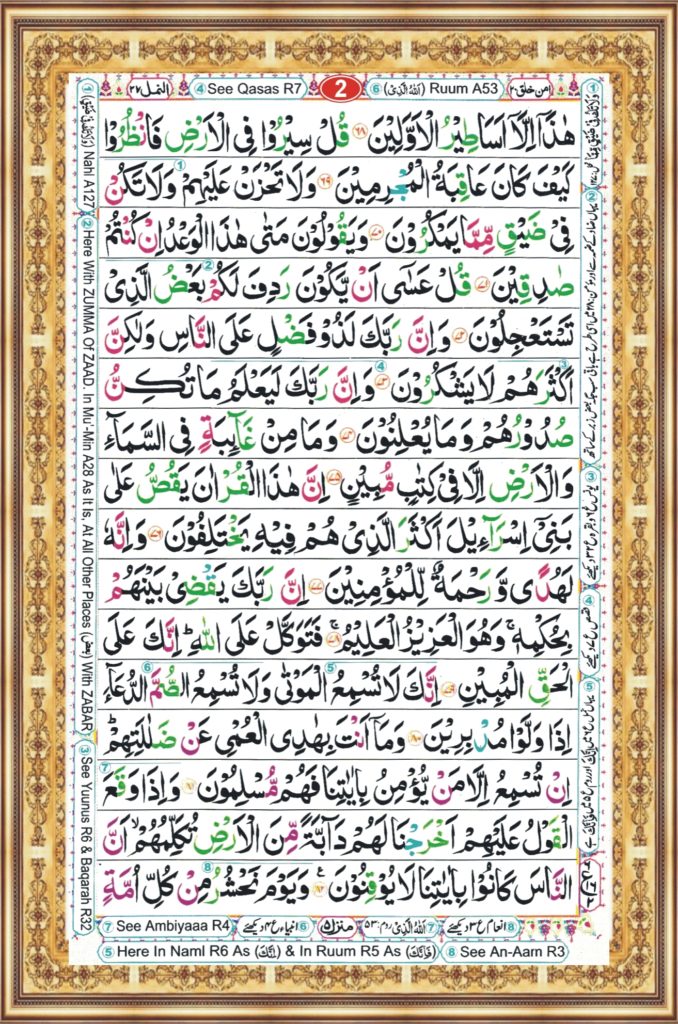 النمل ٢٧
④ See Qasas R7
2
⑥ (اللّٰهُ الَّذِیْ) Ruum A53
امن خلق ٢٠
هٰذَاۤ اِلَّاۤ اَسَاطِیْرُ الْاَوَّلِیْنَ ٦٨ قُلْ سِیْرُوْا فِی الْاَرْضِ فَانْظُرُوْا
كَیْفَ كَانَ عَاقِبَةُ الْمُجْرِمِیْنَ ٦٩ وَلَا تَحْزَنْ عَلَیْهِمْ وَلَا تَكُنْ
فِیْ ضَیْقٍ مِّمَّا یَمْكُرُوْنَ ٧٠ وَیَقُوْلُوْنَ مَتٰی هٰذَا الْوَعْدُ اِنْ كُنْتُمْ
صٰدِقِیْنَ ٧١ قُلْ عَسٰۤی اَنْ یَّكُوْنَ رَدِفَ لَكُمْ بَعْضُ الَّذِیْ
تَسْتَعْجِلُوْنَ ٧٢ وَاِنَّ رَبَّكَ لَذُوْ فَضْلٍ عَلَی النَّاسِ وَلٰكِنَّ
اَكْثَرَهُمْ لَا یَشْكُرُوْنَ ٧٣ وَاِنَّ رَبَّكَ لَیَعْلَمُ مَا تُكِنُّ
صُدُوْرُهُمْ وَمَا یُعْلِنُوْنَ ٧٤ وَمَا مِنْ غَآئِبَةٍ فِی السَّمَآءِ
وَالْاَرْضِ اِلَّا فِیْ كِتٰبٍ مُّبِیْنٍ ٧٥ اِنَّ هٰذَا الْقُرْاٰنَ یَقُصُّ عَلٰی
بَنِیْۤ اِسْرَآءِیْلَ اَكْثَرَ الَّذِیْ هُمْ فِیْهِ یَخْتَلِفُوْنَ ٧٦ وَاِنَّهٗ
لَهُدًی وَّرَحْمَةٌ لِّلْمُؤْمِنِیْنَ ٧٧ اِنَّ رَبَّكَ یَقْضِیْ بَیْنَهُمْ
بِحُكْمِهٖ ۚ وَهُوَ الْعَزِیْزُ الْعَلِیْمُ ٧٨ فَتَوَكَّلْ عَلَی اللّٰهِ ؕ اِنَّكَ عَلَی
الْحَقِّ الْمُبِیْنِ ٧٩ اِنَّكَ لَا تُسْمِعُ الْمَوْتٰی وَلَا تُسْمِعُ الصُّمَّ الدُّعَآءَ
اِذَا وَلَّوْا مُدْبِرِیْنَ ٨٠ وَمَاۤ اَنْتَ بِهٰدِی الْعُمْیِ عَنْ ضَلٰلَتِهِمْ ؕ
اِنْ تُسْمِعُ اِلَّا مَنْ یُّؤْمِنُ بِاٰیٰتِنَا فَهُمْ مُّسْلِمُوْنَ ٨١ وَاِذَا وَقَعَ
الْقَوْلُ عَلَیْهِمْ اَخْرَجْنَا لَهُمْ دَآبَّةً مِّنَ الْاَرْضِ تُكَلِّمُهُمْ ۙ اَنَّ
النَّاسَ كَانُوْا بِاٰیٰتِنَا لَا یُوْقِنُوْنَ ٨٢ وَیَوْمَ نَحْشُرُ مِنْ كُلِّ اُمَّةٍ
① (وَلَا تَكُ فِیْ ضَیْقٍ) Nahl A127 ② Here With ZUMMA Of ZAAD. In Mu'-Min A28 As It Is. At All Other Places (بعض) With ZABAR ③ See Yuunus R6 & Baqarah R32
⑦ See Ambiyaaa R4 ⑥ انبیاء ع ٤ دیکھئے منزل ٥ ⑦ اللّٰهُ الَّذِیْ روم: ٥٣ ⑧ انعام ع ٣ دیکھئے
⑤ Here In Naml R6 As (اِنَّكَ) & In Ruum R5 As (فَاِنَّكَ) ⑧ See An-Aam R3